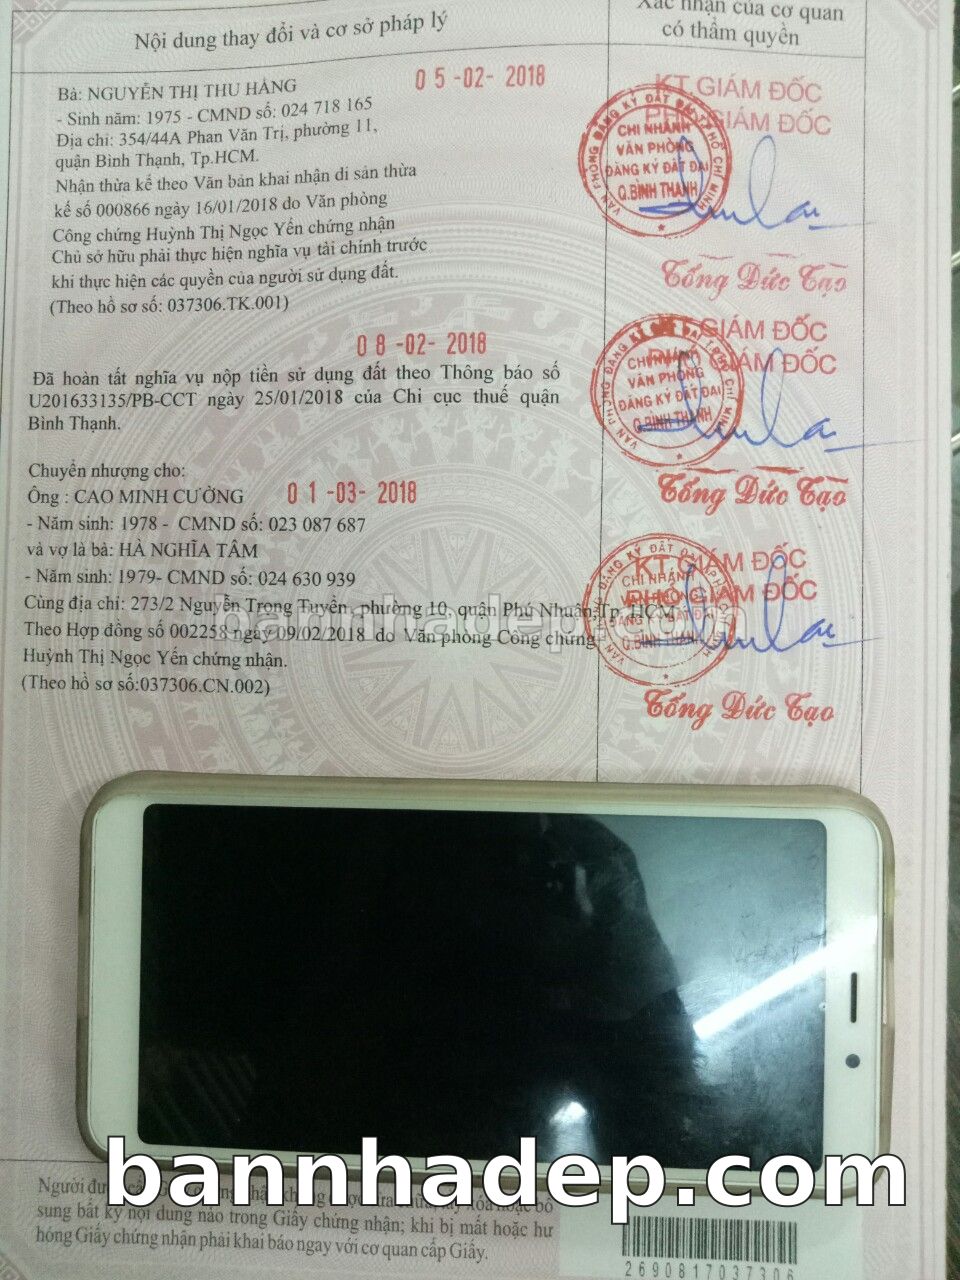 Nội dung thay đổi và cơ sở pháp lý
Xác nhận của cơ quan
có thẩm quyền
Bà: NGUYỄN THỊ THU HẰNG
05-02-2018
- Sinh năm: 1975 - CMND số: 024 718 165
Địa chỉ: 354/44A Phan Văn Trị, phường 11,
quận Bình Thạnh, Tp.HCM.
Nhận thừa kế theo Văn bản khai nhận di sản thừa
kế số 000866 ngày 16/01/2018 do Văn phòng
Công chứng Huỳnh Thị Ngọc Yến chứng nhận
Chủ sở hữu phải thực hiện nghĩa vụ tài chính trước
khi thực hiện các quyền của người sử dụng đất.
(Theo hồ sơ số: 037306.TK.001)
KT.GIÁM ĐỐC
PHÓ GIÁM ĐỐC
VĂN PHÒNG ĐĂNG KÝ ĐẤT ĐAI T.P HỒ CHÍ MINH
CHI NHÁNH
VĂN PHÒNG
ĐĂNG KÝ ĐẤT ĐAI
Q.BÌNH THẠNH
Tống Đức Tạo
08-02-2018
Đã hoàn tất nghĩa vụ nộp tiền sử dụng đất theo Thông báo số
U201633135/PB-CCT ngày 25/01/2018 của Chi cục thuế quận
Bình Thạnh.
KT.GIÁM ĐỐC
PHÓ GIÁM ĐỐC
CHI NHÁNH
VĂN PHÒNG
ĐĂNG KÝ ĐẤT ĐAI
Q.BÌNH THẠNH
Tống Đức Tạo
Chuyển nhượng cho:
Ông : CAO MINH CƯỜNG
01-03-2018
- Năm sinh: 1978 - CMND số: 023 087 687
và vợ là bà: HÀ NGHĨA TÂM
- Năm sinh: 1979- CMND số: 024 630 939
Cùng địa chỉ: 273/2 Nguyễn Trọng Tuyển, phường 10, quận Phú Nhuận,Tp.HCM
Theo Hợp đồng số 002258 ngày 09/02/2018 do Văn phòng Công chứng
Huỳnh Thị Ngọc Yến chứng nhận.
(Theo hồ sơ số:037306.CN.002)
KT.GIÁM ĐỐC
PHÓ GIÁM ĐỐC
CHI NHÁNH
VĂN PHÒNG
ĐĂNG KÝ ĐẤT ĐAI
Q.BÌNH THẠNH
Tống Đức Tạo
bannhadep.com
bannhadep.com
Người được
sung bất kỳ nội dung nào trong Giấy chứng nhận; khi bị mất hoặc hư
hỏng Giấy chứng nhận phải khai báo ngay với cơ quan cấp Giấy.
2690817037306